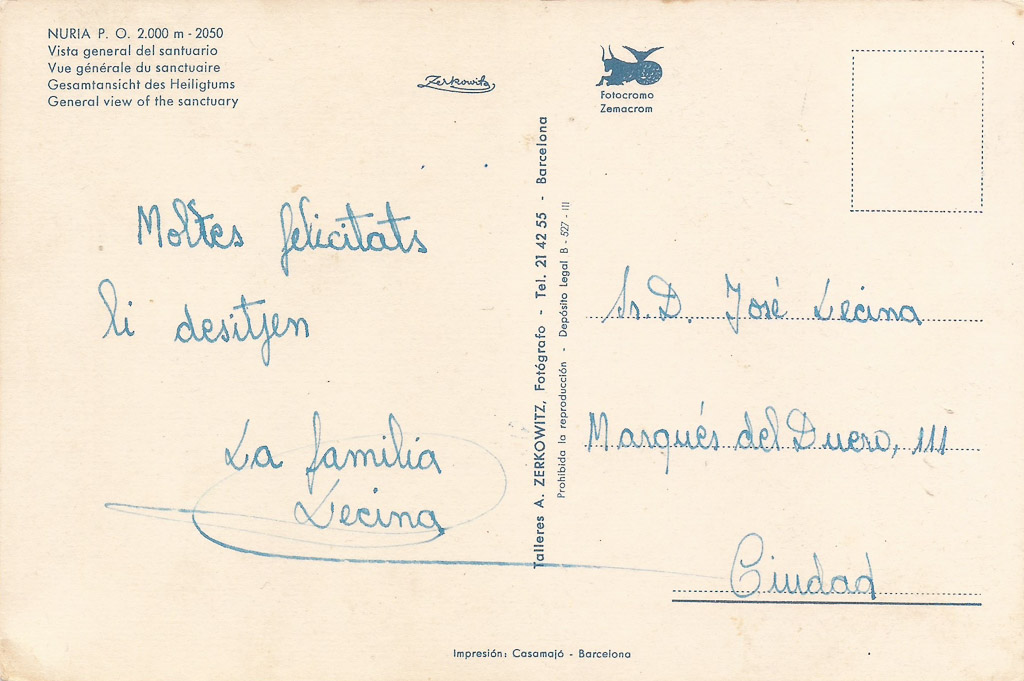 NURIA P. O. 2.000 m - 2050
Vista general del santuario
Vue générale du sanctuaire
Gesamtansicht des Heiligtums
General view of the sanctuary
Zerkowitz
Fotocromo
Zemacrom
Moltes felicitats
li desitjen
La familia
Lecina
Talleres A. ZERKOWITZ, Fotógrafo - Tel. 21 42 55 - Barcelona
Prohibida la reproducción - Depósito Legal B - 527 - III
Sr. D. José Lecina
Marqués del Duero, 111
Ciudad
Impresión: Casamajó - Barcelona